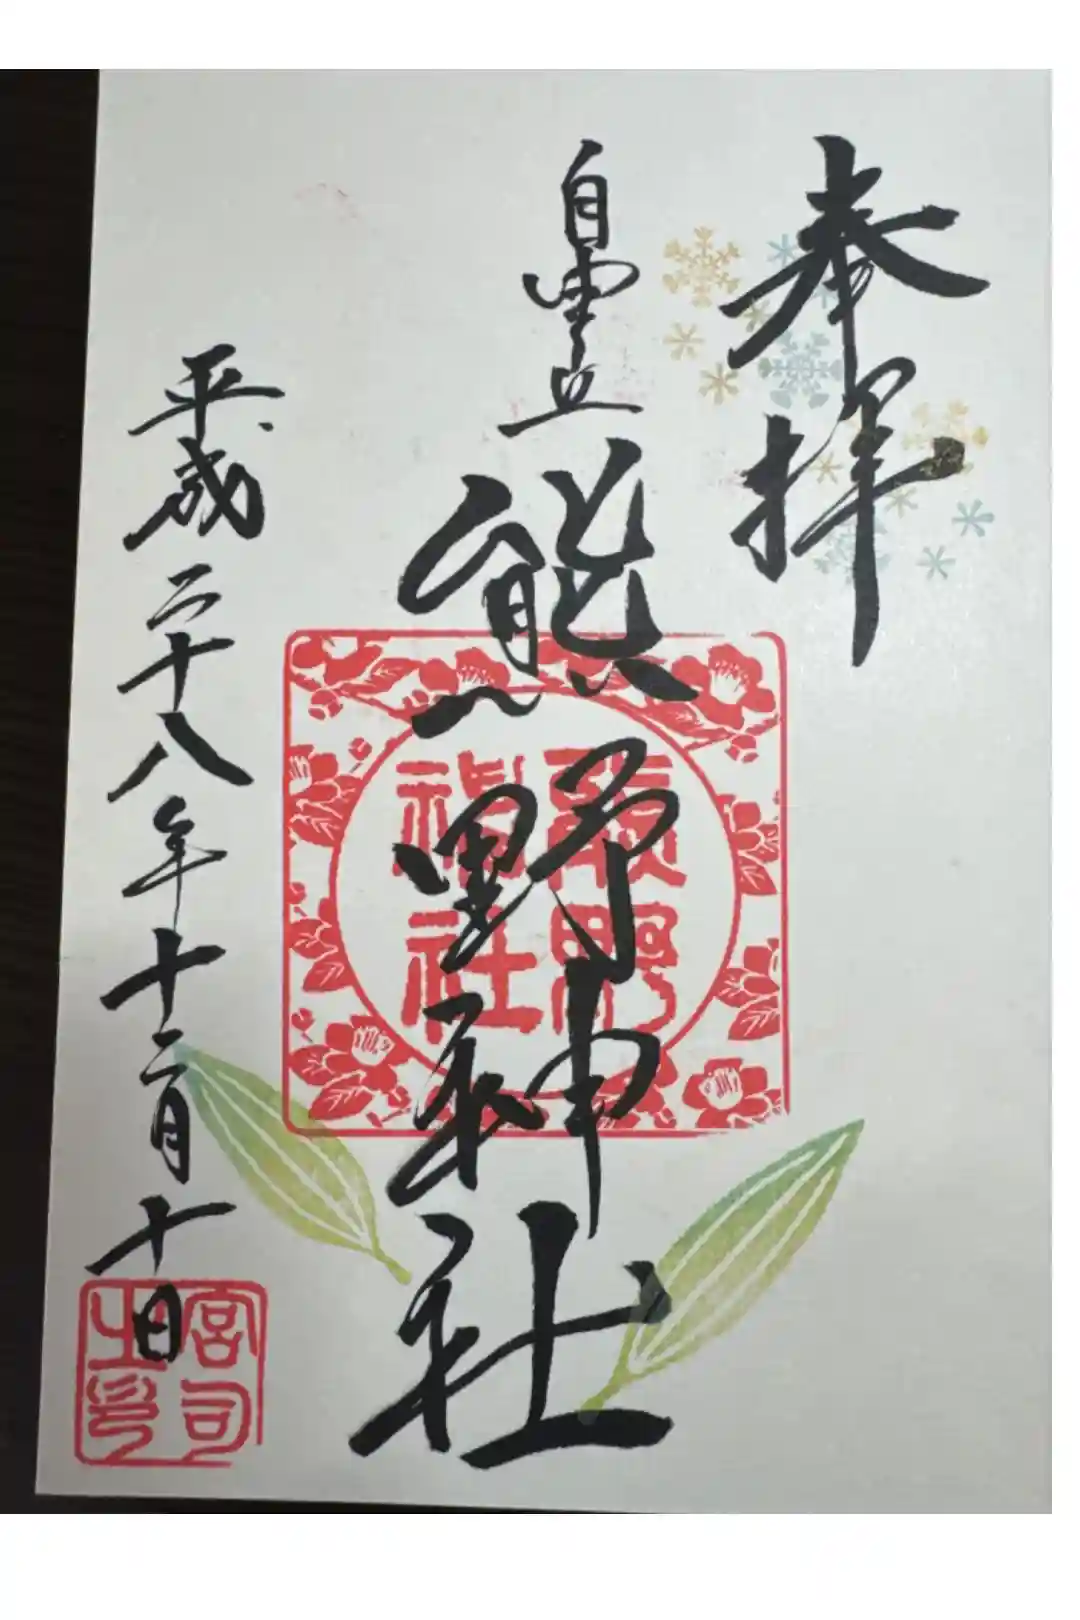 奉拝
自由丘
熊野神社
熊野
神社
平成二十八年十二月十日
宮司
之印